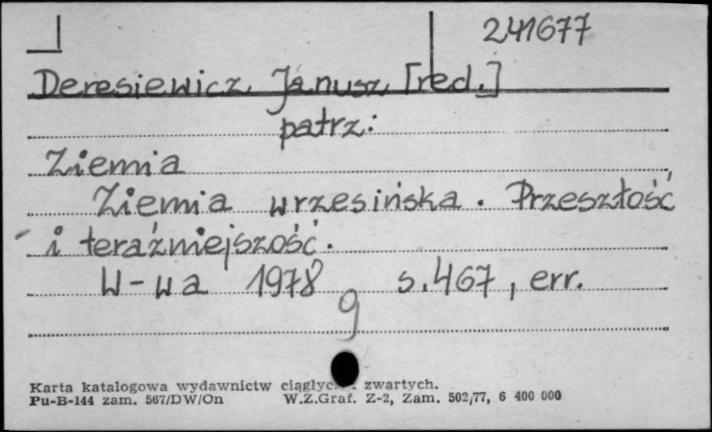 241677
Deresiewicz Janusz [red.]
patrz:
Ziemia
Ziemia wrzesińska. Przeszłość
i teraźniejszość.
W-wa 1978 s.467, err.
9
Karta katalogowa wydawnictw ciągłych i zwartych.
Pu-B-144 zam. 567/DW/On W.Z.Graf. Z-2, Zam. 502/77, 6 400 000